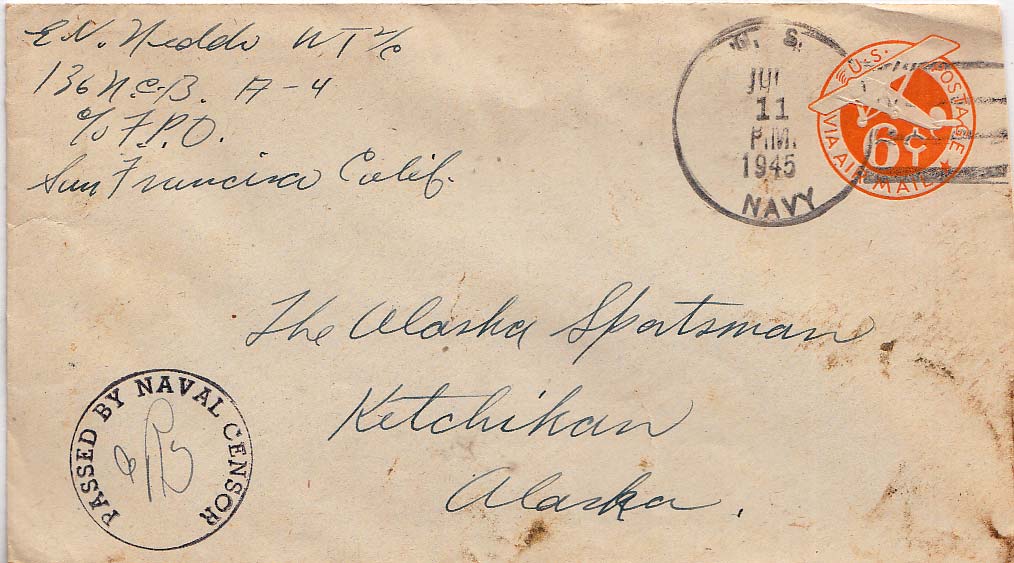 E.N. Neddo WT 2/c
136 N.C.B. A-4
c/o F.P.O.
San Francisco Calif.
U. S.
JUL
11
P.M.
1945
NAVY
U.S. POSTAGE
6¢
VIA AIR MAIL
The Alaska Sportsman
Ketchikan
Alaska.
PASSED BY NAVAL CENSOR